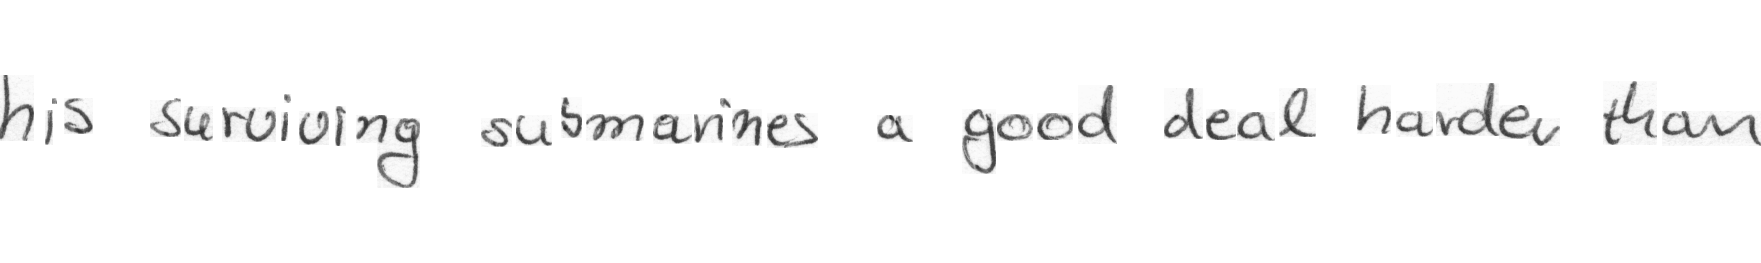 his surviving submarines a good deal harder than